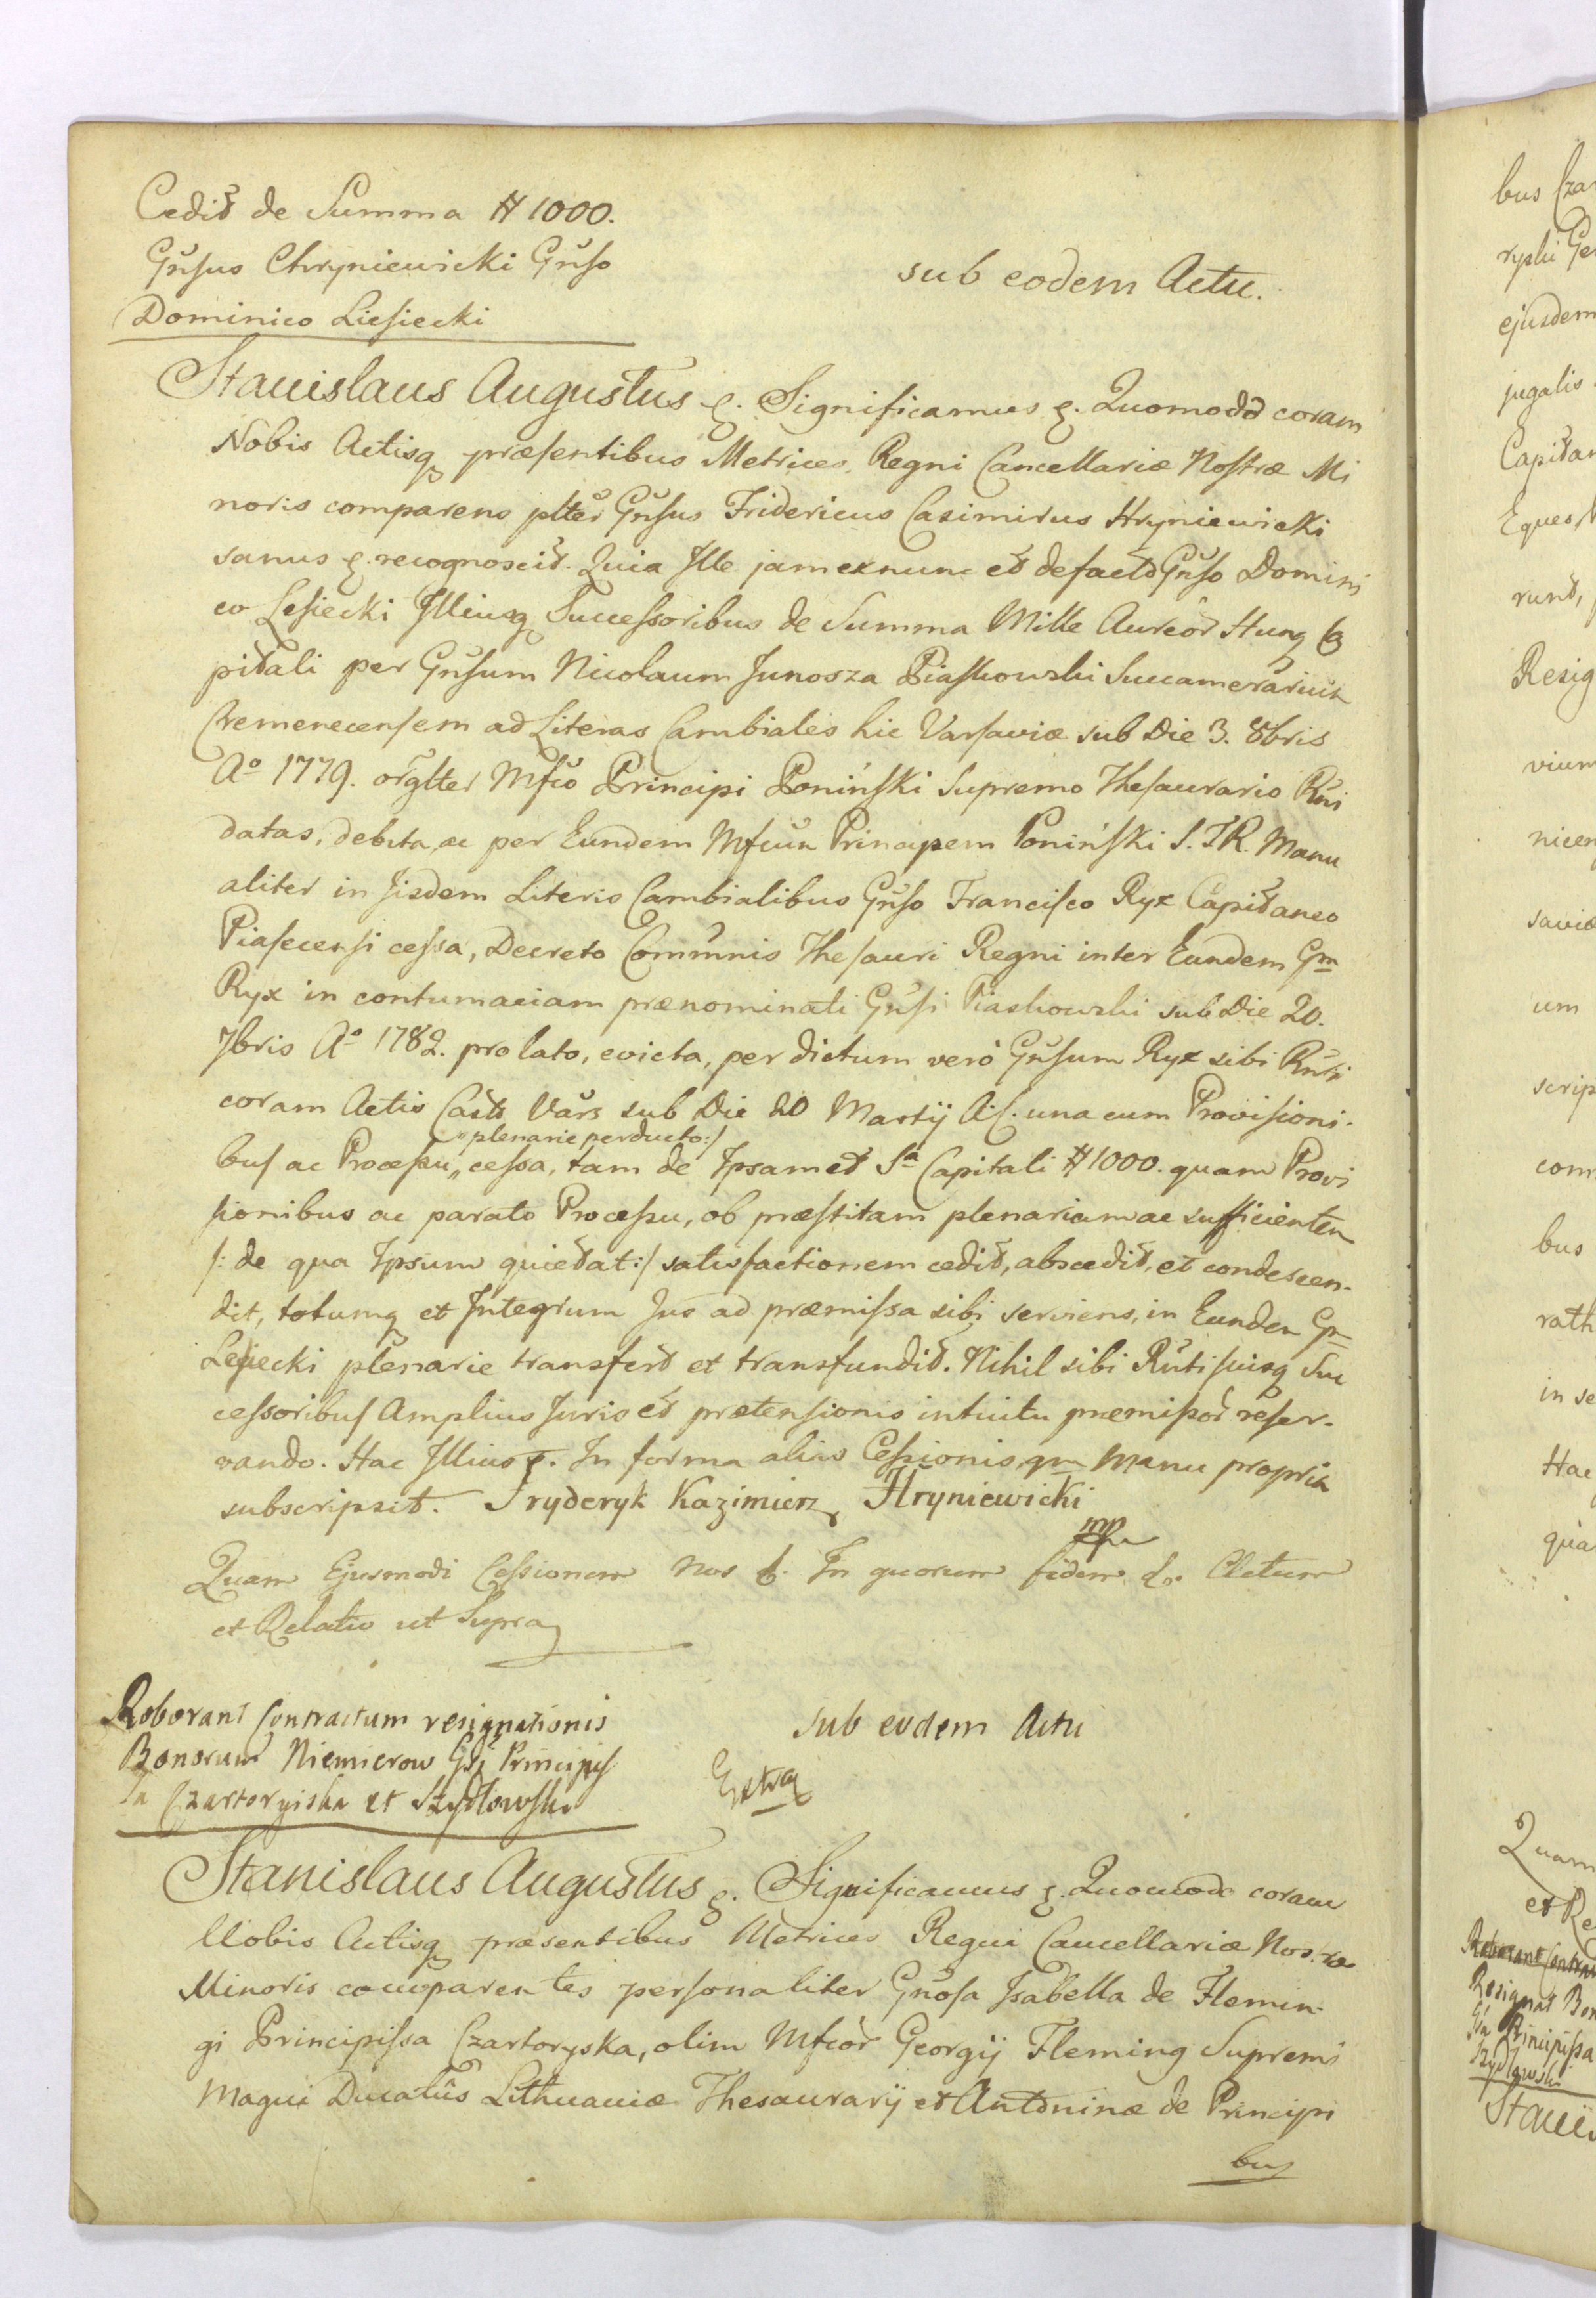 Cedit de Summa # 1000.
Gnsus Chryniewicki Gnso
Dominico Liesiecki
sub eodem Actu.
Stanislaus Augustus &. Significamus &. Quomodo coram
Nobis Actisq præsentibus Metrices Regni Cancellariæ Nostræ Mi
noris comparens plter Gnsus Fridericus Casimirus Hryniewicki
sanus &. recognoscit. Quia Ille jam exnunc et defacto Gnso Domini
co Lesiecki Illiusq Successoribus de Summa Mille Aureor Hung Ca
pitali per Gnsum Nicolaum Junosza Piaskowski Succamerarium
Cremenecensem ad Literas Cambiales hic Varsaviæ sub Die 3. 8bris
Ao 1779. orglter Mfco Principi Poniński Supremo Thesaurario Rni
datas, debita, ac per Eundem Mfcum Principem Poniński S. T. R. Manu
aliter in Iisdem Literis Cambialibus Gnso Francisco Ryx Capitaneo
Piasecensi cessa, Decreto Commnis Thesauri Regni inter Eundem Gm
Ryx in contumaciam prænominati Gnsi Piaskowski sub Die 20.
7bris Ao 1782. prolato, evicta, per dictum verò Gnsum Ryx sibi Rnti
coram Actis Casts Vars sub Die 20 Martij A. C. una cum Provisioni-
bus ac Processu „ cessa, tam de Ipsamet Sa Capitali # 1000. quam Provi
„ plenarie perducto :/
sionibus ac parato Processu, ob præstitam plenariam ac sufficientem
/: de qua Ipsum quietat :/ satisfactionem cedit, abscedit, et condescen-
dit, totumq et Integrum Jus ad præmissa sibi serviens, in Eundem Gm
Lesiecki plenarie transfert et transfundit. Nihil sibi Rnti suisq Suc
cessoribus Amplius Juris et prætensionis intuitu præmissor reser-
vando. Hac Illius &. In forma alias Cessionis qm Manu propria
subscripsit. Fryderyk Kazimierz Hryniewicki
mp
Quam Ejusmodi Cessionem Nos &. In quorum fidem &. Actum
et Relatio ut Supra
Roborant Contractum resignationis
Bonorum Niemierow Gsi Principis
sa Czartoryiska et Szydłowski
Sub eodem Actu
Extra
Stanislaus Augustus &. Significamus &. Quomodo coram
Nobis Actisq præsentibus Metrices Regni Cancellariæ Nostræ
Minoris comparentes personaliter Gnosa Isabella de Flemin-
gi Principissa Czartoryska, olim Mfcor Georgij Fleming Supremi
Magni Ducatûs Lithuaniæ Thesaurarij et Antoninæ de Principi
bus